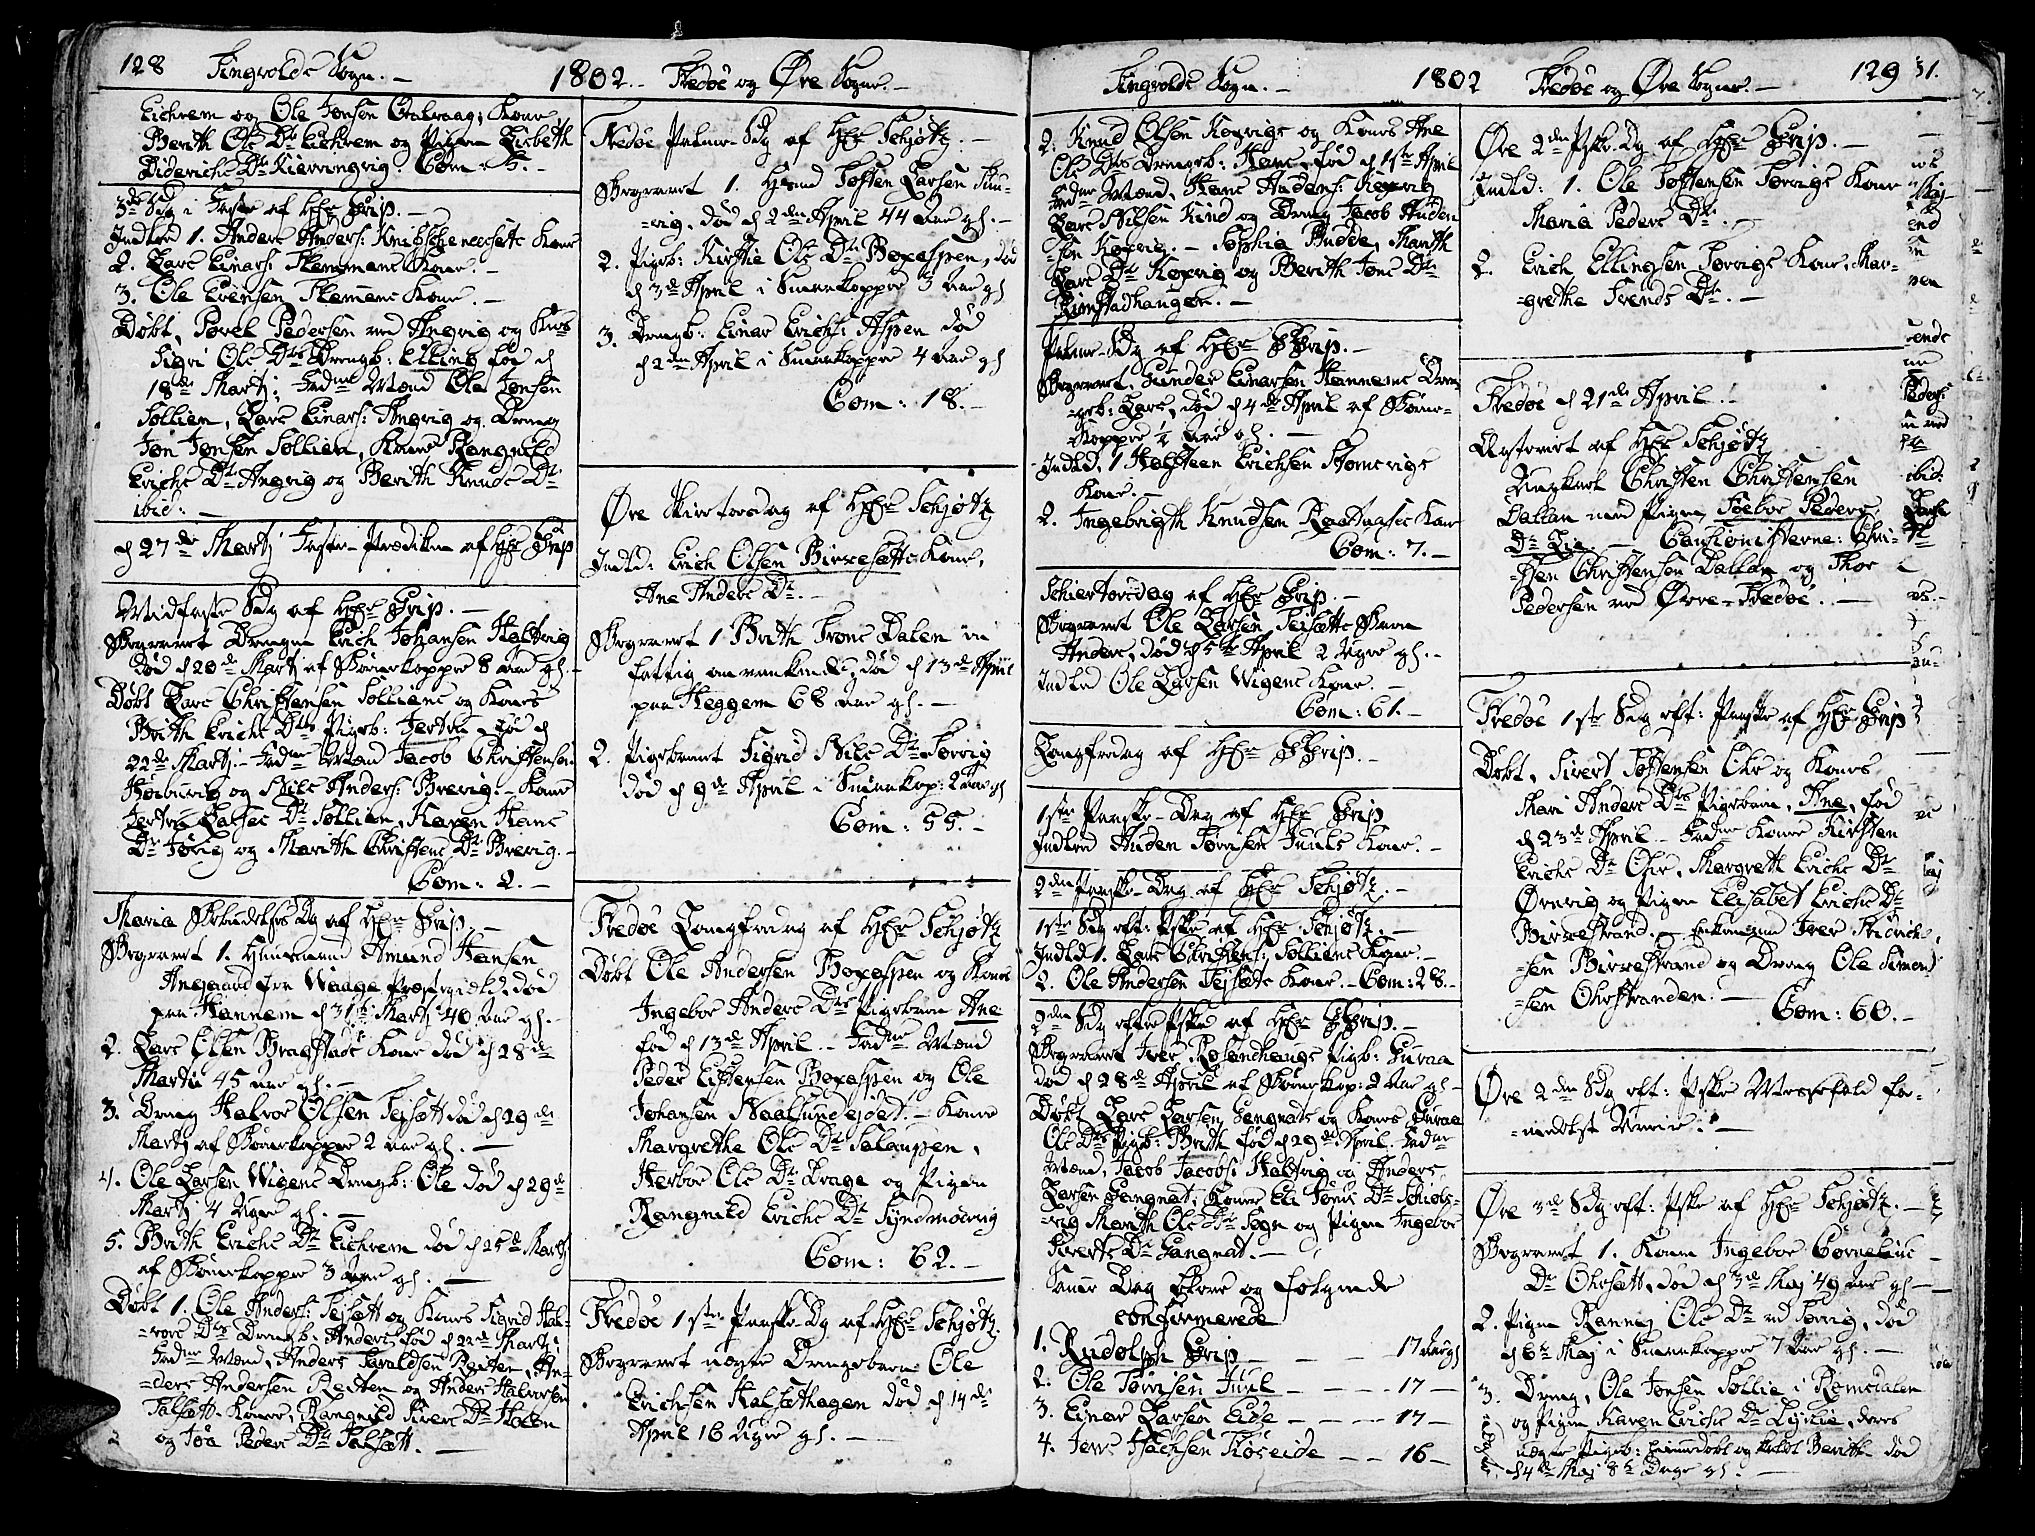 128 Tingvolds Sogn. –
1802. – Fredøe og Øre Sogner. –
Eichrem og Ole Jonsen Kone
Berith Ols Dr Eichrem og Pigen Lisbeth
Diderichs Dr Kierringvig. Com: 5. –
3de Sdg i Faste af Hr Grip. –
Indled 1. Anders Anders: Kone
2. Lars Einars: Flemmens Kone. –
3. Ole Evensen Flemmens Kone. –
Døbt, Povel Pedersen ved Angvig og Kones
Sigri Ols Drs Drengb: Elling fød d
18de Martj; Fadne Mænd Ole Jonsen
Sollien, Lars Einars: Angvig og Dreng
Jon Jonsen Sollien, Kone Rangnild
Erichs Dr Angvig og Berith Knuds Dr
ibid: –
d 27de Martj Faste-Prædiken af Hr Grip
Midfaste Sdg af Hr Grip. –
Begravet Drengen Erich Johansen Haltvig
død d 20de Martj af Børnekopper 8 aar gl. –
Døbt Lars Christensen Solliens og Kones
Brith Erichs Drs Pigeb: Jertru fød d
22de Martj. – Fadne Mænd Jacob Christensen
og Nils Anders: Brevig. – Kone
Jertru Lasses Dr Sollien, Karen Hans
Dr Torvig og Marith Christens Dr Brevig. –
Com: 2. –
Maria Bebudelses Dg af Hr Grip. –
Begravet 1. Huusmand Amund Hansen
Angaard fra Waage Præstegield, død
paa Hannem d 31te Martj 40 aar gl. –
2. Lars Olsen Bragstads Kone død d 28de
Martii 45 aar gl. –
3. Dreng Halvor Olsen Tejsæt død d 29de
Martj af Børnekopper 2 aar gl. –
4. Ole Larsen Wigens Drengb: Ole død d 29de
Martj 4 Uger gl. –
5. Brith Erichs Dr Eichrem død d 25de Martj
af Børnekopper 3 aar gl. –
Døbt 1. Ole Anders: Tejsæt og Kones Sigrid Hal-
=vors Drs Drengb: Anders fød d 22de Martj;
Fadne Mænd, Anders Haraldsen Reiten, An-
=ders Andersen Reiten og Anders Halvorsen
Talsæt. Koner, Rangnild Sivers Dr Holen
og Joa Peders Dr Talsæt. –
Fredøe Palme-Sdg af Hr Schjøtz. –
Begravet 1. Huusmand Tosten Larsen
=vig, død d 2den April 44 aar gl. –
2. Pigeb: Kirstie Ols Dr Boxaspen, død
d 3de April i Smaakopper 3 aar gl
3. Drengb: Einar Erichs: Aspen død
d 2den April i Smaakopper 4 aar gl
Com: 18. –
Øre Skiertorsdag af Hr Schjøtz
Indled: Erich Olsen Birresætts Kone,
Ane Anders Dr. –
Begravet 1 Brith Trons Dalen en
fattig omvankende, død d 13de April
paa Heggem 68 aar gl. –
2. Pigebarnet Sigrid Nils Dr Torvig
død d 9de April i Smaakop: 2 aar gl
Com: 55. –
Fredøe Langfredag af Hr Schjøtz
Døbt Ole Andersen Boxaspen og Kones
Ingebor Anders Drs Pigebarn Ane
fød d 13de April. – Fadne Mænd
Peder Boxaspen og Ole
Johansen Naalsundejdet. – Kone
Margrethe Ols Dr
Herbor Ols Dr Drage og Pigen
Rangnild Erichs Dr
Com: 62. –
Fredøe 1ste Paaske-Dg af Hr Schjøtz.
Begravet uægte Drengebarn Ole
Erichsen Halsæthagen død d 14de
April 16 Uger gl. –
Tingvolds Sogn. –
1802 Fredøe og Øre Sogner. – 129
2. Knud Olsen Koxvigs og Kones Ane
Ols Drs Drengeb: Hans, fød d 1ste April
Fadne Mænd. Hans Audens: Koxvig
Lars Nilsen Kind og Dreng Jacob Auden
=sen Koxvig. – Sophia Budde, Marith
Lars Dr Koxvig og Berith Jons Dr
Rimstadhangen. –
Palme-Sdg af Hr Grip. –
Begravet. Gunder Einarsen Hannems Dren-
=geb: Lars, død d 4de April af Børne-
Kopper ½ Aar gl. –
Indled, 1 Halsteen Erichsen Stomsvigs
Kone. –
2. Ingebrigth Knudsen Kone
Com: 7. –
Schiertorsdag af Hr Grip. –
Begravet Ole Larsen Teisæts Barn
Anders, død d 5te April 2 Uger gl. –
Indled Ole Larsen Wigens Kone. –
Com: 61. –
Langfredag af Hr Grip. –
1ste Paaske-Dag af Hr Grip
Indled Auden Torrisen Juuls Kone. –
2den Paaske-Dag af Hr Schjøtz. –
1ste Sdg eft: Pske af Hr Schjøtz. –
Indled 1. Lars Christens: Solliens Kone. –
2. Ole Andersen Tejsæts Kone. – Com: 28. –
2den Sdg efter Pske af Hr Grip. –
Begravet Iver Rosendhaugs Pigeb: Guraa
død d 28de April af Børnekop: 2 aar gl. –
Døbt Lars Larsen Gangnats og Kones Guraa
Ols Drs Pigeb: Brith fød d 29de April. Fadne
Mænd, Jacob Jacobs: Haltvig og Anders
Larsen Gangnat; Kone Eli Jons Dr
=vig Marith Ols Dr Sogn og Pigen Ingebor
Siverts Dr Gangnat. –
Samme Dag bleve og følgende
confirmerede
1. Rudolph Grip – – – 17 Aar gl
2. Ole Torrisen Juul – – – 17 –
3. Einar Larsen Eide – – – 17 –
4. Jens Isachsen Koseide – – 16 –
Øre 2den Pske-Dg af Hr Grip. –
Indled: 1. Ole Tostensen Torvigs Kone
Maria Peders Dr. –
2. Erich Ellingsen Torvigs Kone, Mar-
=grethe Trends Dr. –
Fredøe d 21de April.
Copuleret af Hr Schjøtz
Ungkarl Christen Christensen
Dallan med Pigen Toebor Peders
Dr Lie. – Cautionisterne: Chri-
=sten Christensen Dallan og Thor
Pedersen ved Øvre-Fredøe. –
Fredøe 1ste Sdg eft: Paaske af Hr Grip
Døbt, Sivert Tostensen Okr og Kones
Mari Anders Drs Pigebarn, Ane, fød
d 23de April – Fadne Kone Kirsten
Erichs Dr Okr, Margreth Erichs Dr
Ørevig og Pigen Elisabet Erichs Dr
Birrestrand. – Enkemand Iver
=sen Birrestrand og Dreng Ole Simon-
=sen Okrstranden. –
Com: 60. –
Øre 2den Sdg eft: Pske Messefald for-
=medelst
Øre 3de Sdg eft: Pske af Hr Schjøtz. –
Begravet 1. Kone Ingebor Cornelius
Dr Okrsætt, død d 3de Maj 49 aar gl –
2. Pigen Ranney Ols Dr ved Torvig, død
d 6te Maj i Smaakopper 7 Aar gl. –
3. Dreng, Ole Jonsen Sollie i Romsdalen
og Pigen Karen Erichs Dr Lystie, deres
uægte Pigeb: hiemmedøbt og kaldt Berith død
d 4de Maj 8te Dage gl. –